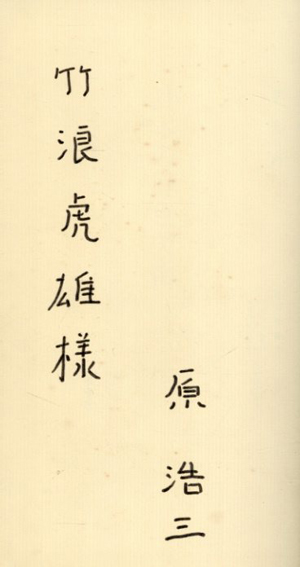 原浩三
竹浪虎雄様